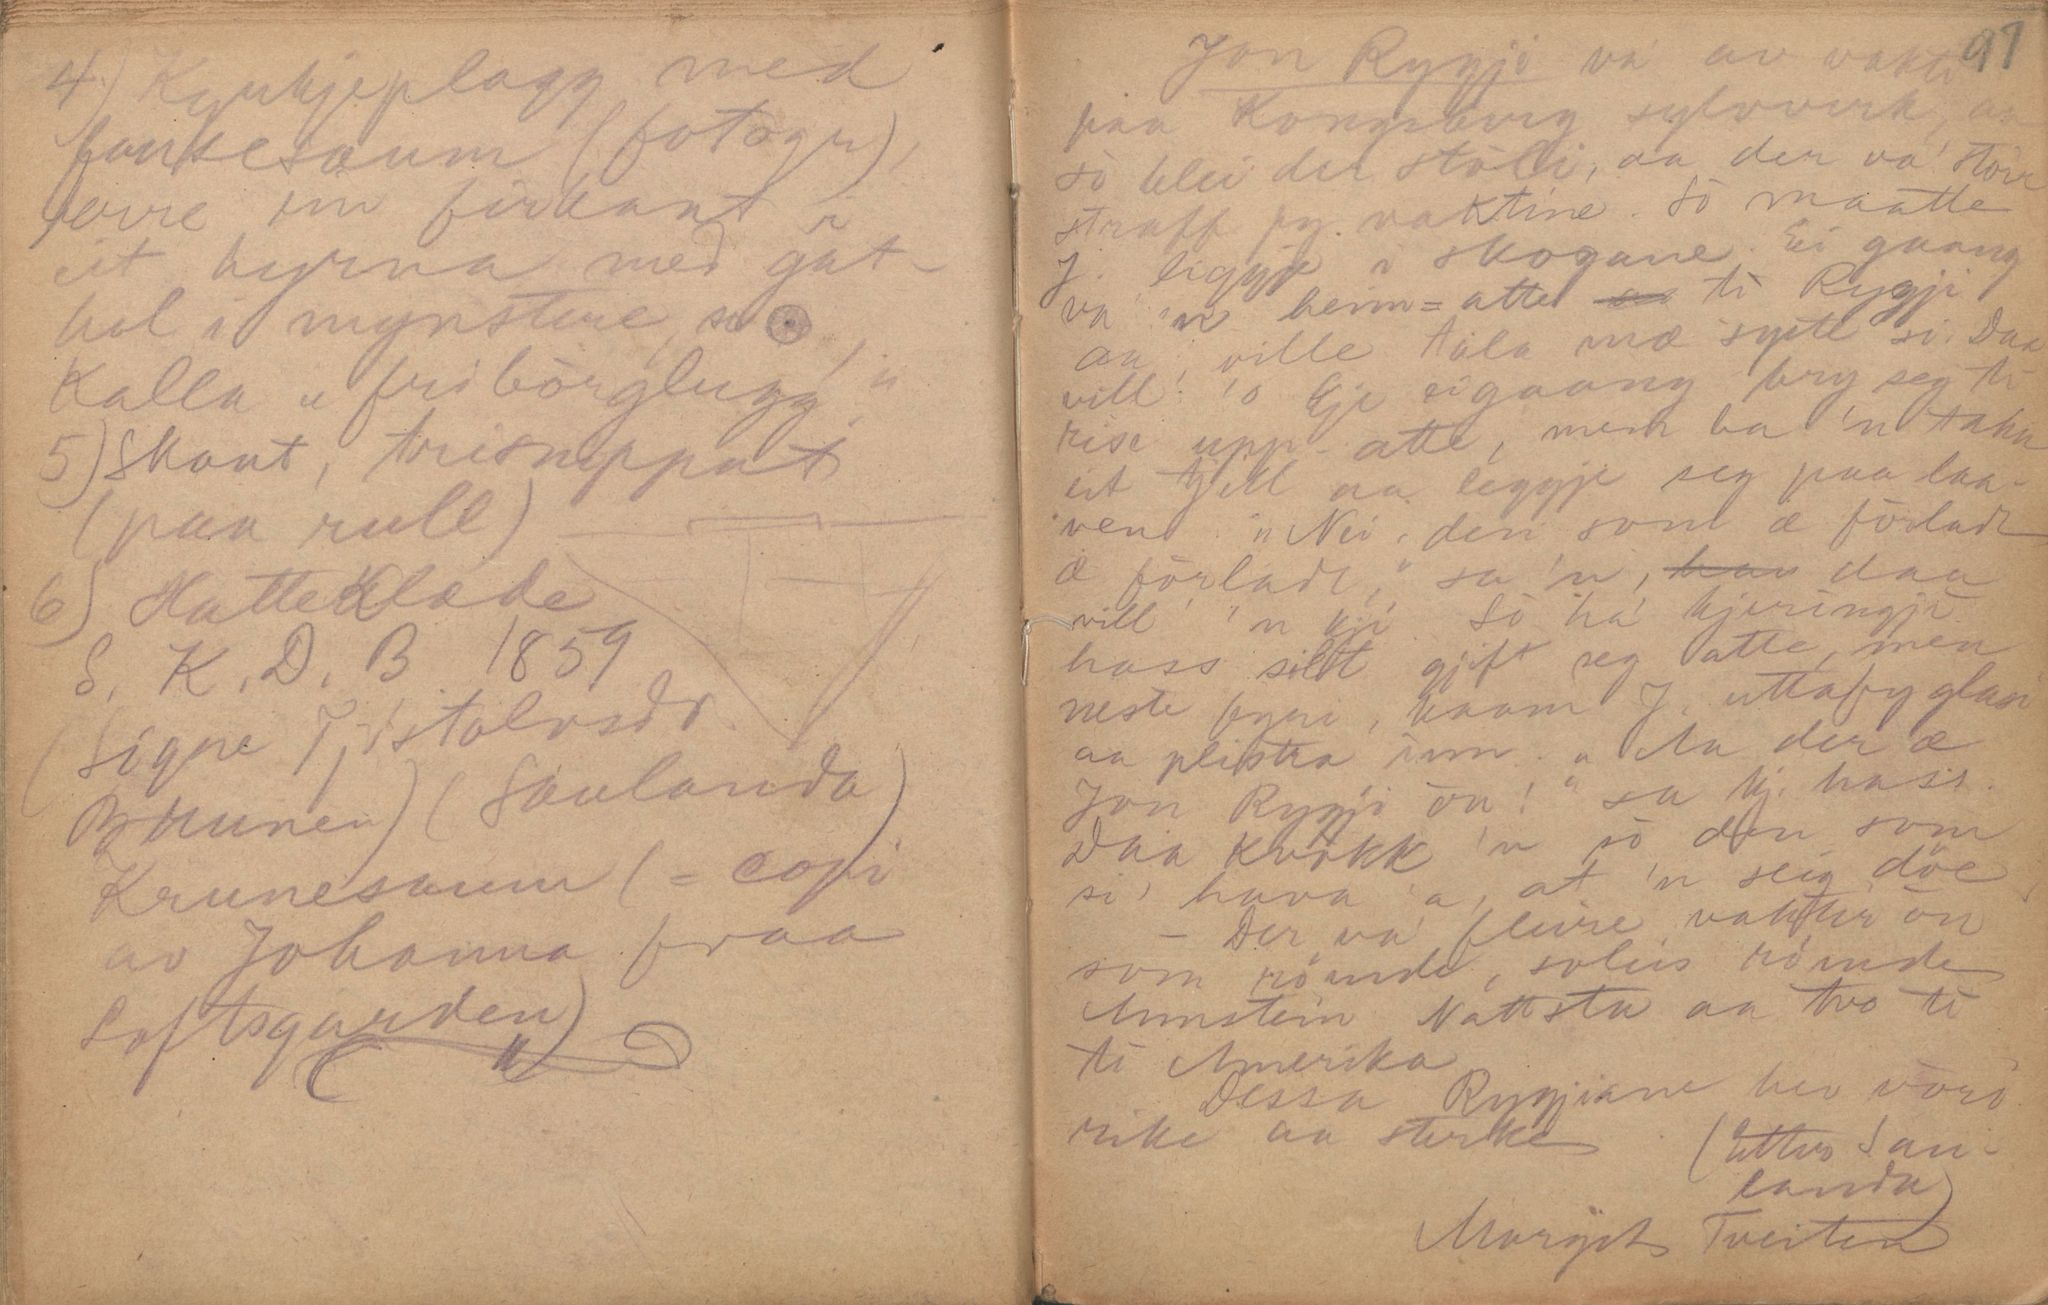 4) Kyrkjeplagg med
(fotogr),
ein firkant i
eit hyrna med gat-
hol i mynstere, so
Kalla "friborglugg"
5) Skaut, trisnippat
(paa rull)
6) Hatteklæde
S. K. D. B 1859
(Signe
(Saulanda)
Krunesaum (= copi
av Johanna fraa
Loftsgarden)
97
Jon Rygji va av vakti
paa Kongsberg sylvverk, aa
so blei der stoli, aa der va' stor
straff fy vaktine. So maatte
J. liggje i skogane. Ei gaang
va 'n heim-atte ti Rygji
aa ville tala mæ syste si. Daa
vill' 'o kje eigaang bry seg ti
rise upp-atte, men ba 'n taka
eit fjell aa leggje seg paa laa-
ven. "Nei, den som æ forladt
æ forladt," sa 'n, daa
vill 'n kji. So ha' kjeringji
hass sillt gjift seg atte, men
neste fyri, kaam J. uttafy glasi
aa plistra inn. "Aa der æ
Jon Rygji on!" sa kj. hass.
Daa krokk 'n so den som
si' hava 'a, at 'n seig döe,
- Der va' fleire vaktir on
som römde, soleis römde
Annstein Nattstu aa tvo ti
ti Amerika
Dessa Rygjiane hev vori
rike aa sterke (etter Sau-
landa)
Margjit Tveiten